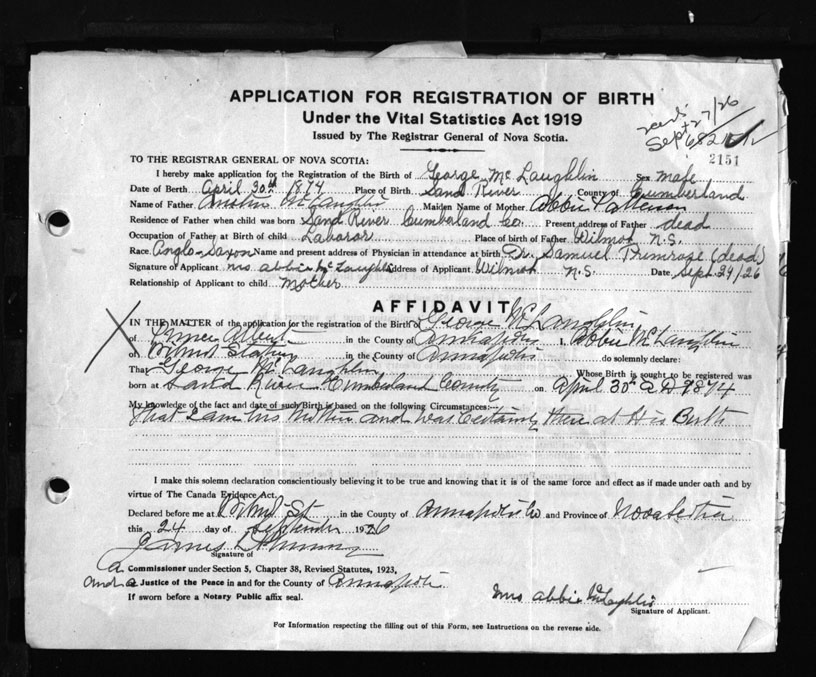 APPLICATION FOR REGISTRATION OF BIRTH
Under the Vital Statistics Act 1919
Issued by The Registrar General of Nova Scotia.
Sept 27/26
2151
TO THE REGISTRAR GENERAL OF NOVA SCOTIA:
I hereby make application for the Registration of the Birth of George McLaughlin Sex male
Date of Birth April 30th 1874 Place of Birth Sand River County of Cumberland
Name of Father McLaughlin Maiden Name of Mother Abbie Patterson
Residence of Father when child was born Sand River Cumberland Co Present address of Father dead
Occupation of Father at Birth of child Laboror Place of birth of Father Wilmot N.S.
Race Anglo-Saxon Name and present address of Physician in attendance at birth Dr. Samuel Primrose (dead)
Signature of Applicant Mrs Abbie McLaughlin Address of Applicant Wilmot N.S. Date Sept 24/26
Relationship of Applicant to child Mother
AFFIDAVIT
IN THE MATTER of the application for the registration of the Birth of George McLaughlin
of in the County of Annapolis I, Abbie McLaughlin
of Wilmot Station in the County of Annapolis do solemnly declare:
That George McLaughlin Whose Birth is sought to be registered was
born at Sand River Cumberland County on April 30th A D 1874
My knowledge of the fact and date of such Birth is based on the following Circumstances:
That I am his Mother and was Certainly there at His Birth
I make this solemn declaration conscientiously believing it to be true and knowing that it is of the same force and effect as if made under oath and by
virtue of The Canada Evidence Act.
Declared before me at in the County of Annapolis Co and Province of Nova Scotia
this 24 day of September 1926
James
Signature of
a Commissioner under Section 5, Chapter 38, Revised Statutes, 1923,
and a Justice of the Peace in and for the County of Annapolis
If sworn before a Notary Public affix seal.
Mrs Abbie McLaughlin
Signature of Applicant.
For Information respecting the filling out of this Form, see Instructions on the reverse side.